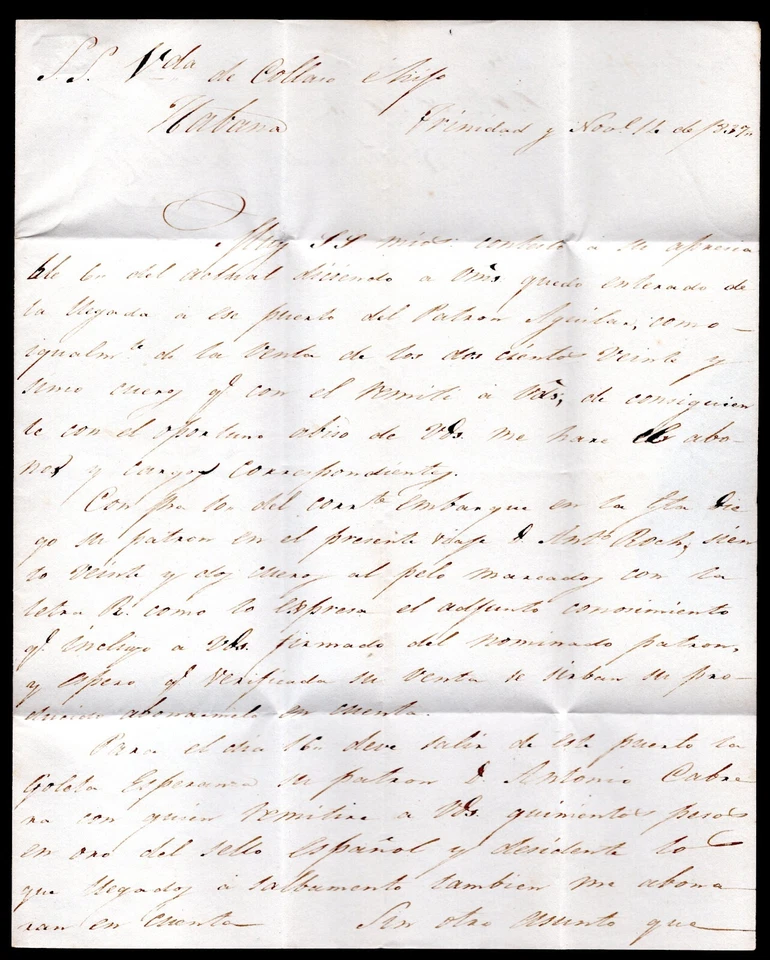 S.S. Vda de Collaso e hijo
Habana Trinidad y Nove. 12 de 1837,,
Muy SS mios: contesto á su aprecia
ble 6n del actual diciendo a Vms quedo enterado de
la llegada á ese puerto del Patron Aguilar, como
igualmte. de la venta de los dos cientos veinte y
cueros qe con el remití a Vds, de consiguien
te con el oportuno abiso de Vds. me hare el abo-
nos y cargos correspondientes.
Con fha del corrte. embarque en la Gta Die
go su patron en el presente viaje D. Anto. Roch, sien
to veinte y dos cueros al pelo marcados con la
letra R. como lo expresa el adjunto conosimiento
qe incluyo a Vds. firmado del nominado patron,
y espero qe verificada su venta se sirban su pro-
ducido abonarmelo en cuenta.
Para el dia 16n deve salir de este puerto la
Goleta Esperanza su patron D Antonio Cabre
ra con quien remitire á Vds. quinientos pesos
en oro del sello Español y desidente lo
que llegados á salbamento tambien me abona
ran en cuenta Sin otro asunto que